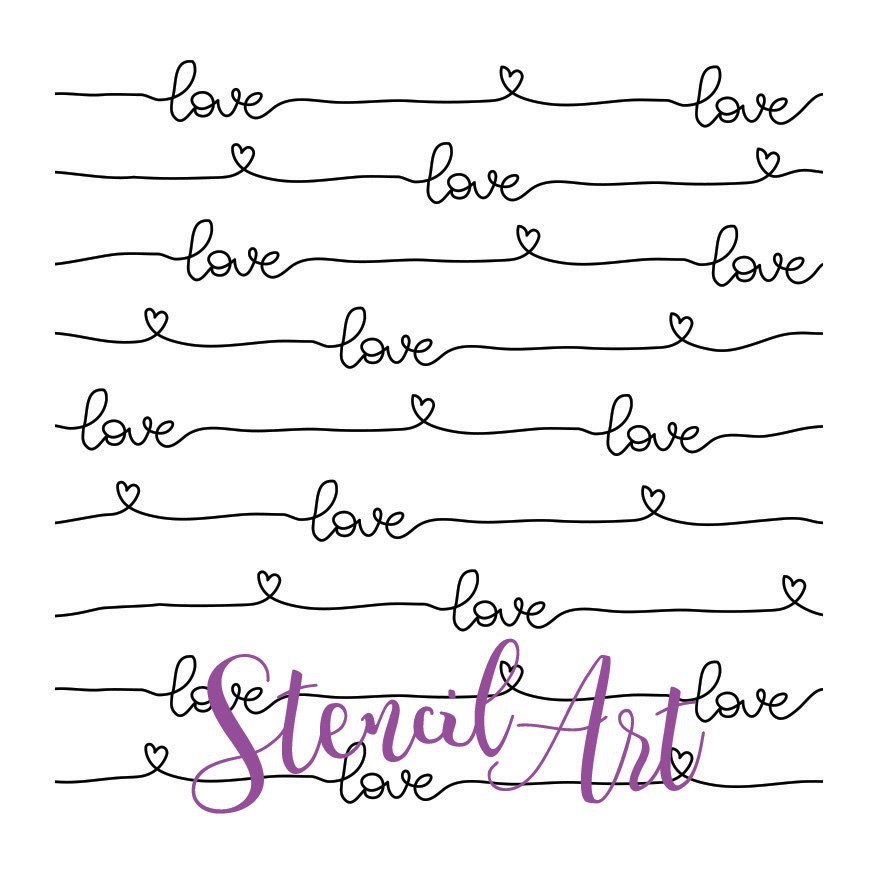 love love
love
love love
love
love love
love
love
love love
Stencil Art
love